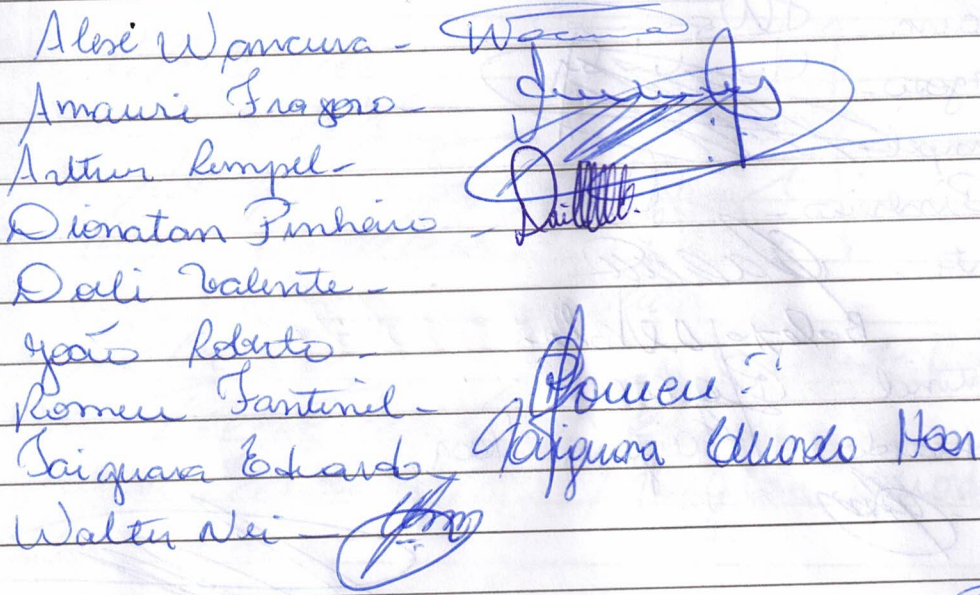 Alesé Wancura -
Amauri Fragoso -
Arthur Rempel -
Dionatan Pinheiro -
Dali Valente -
João Roberto -
Romeu Fantinel - Romeu
Taiguara Eduardo - Taiguara Eduardo Haan
Walter Nei -